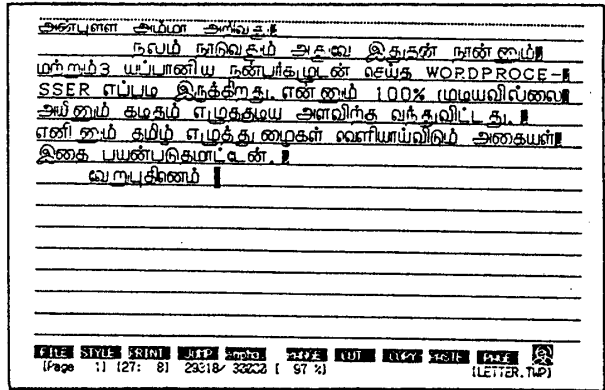 அன்புள்ள அம்மா அறிவது
நலம் நாடுவதும் அதுவே இதுதன் நான் னும்
மற்றும்3 யப்பானிய நன்பர்களுடன் செய்த WORDPROCE-
SSER எப்படி இருக்கிறது. என்னும் 100% முடியவில்லை
அயினும் கடிதம் எழுதகூடிய அளவிற்கு வந்துவிட்டது.
எனினும் தமிழ் எழுத்து மைகள் வெளியாய்விடும் அகையள்
இதை பயன்படுதமாட்டேன்.
வேறுபுதினம்
FILE STYLE PRINT JUMP CUT COPY PASTE PAGE
(Page 1] [27: 8] 29318/ [ 97 %] (LETTER.TWP]